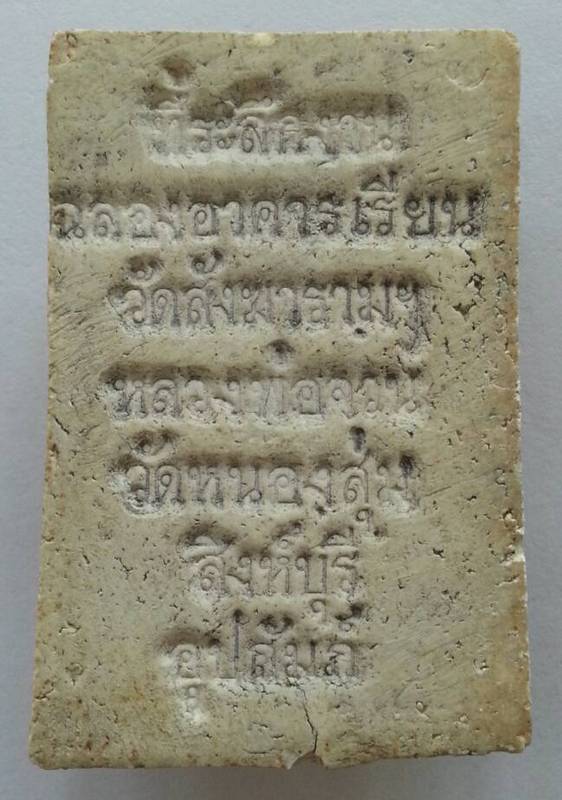 ที่ระลึกงาน
ฉลองอาคารเรียน
วัดสังฆารามฯ
หลวงพ่อจวน
วัดหนองสุ่ม
สิงห์บุรี
อุปถัมภ์